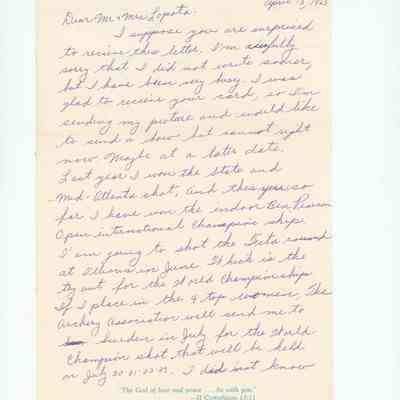 April 3, 1963
Dear Mr. & Mrs. Lopata.
I suppose you are surprised
to receive this letter. I'm awfully
sorry that I did not wrote sooner,
but I have been very busy. I was
glad to receive your card, so I'm
sending my picture and would like
to send a bow but cannot right
now. Maybe at a later date.
Last year I won the State and
Mid-Atlanta shot, and this year so
far I have won the indoor Ben Pearson
Open international Championship.
I am going to shot the Fita round
at in June Which is the
try out for the World Championships
If I place in the 4 top women, The
Archery Association will send me to
Sweden in July for the World
Champion shot that will be held
on July 20-21-22-23. I did not know
"The God of love and peace . . . be with you."
—II Corinthians 13:11